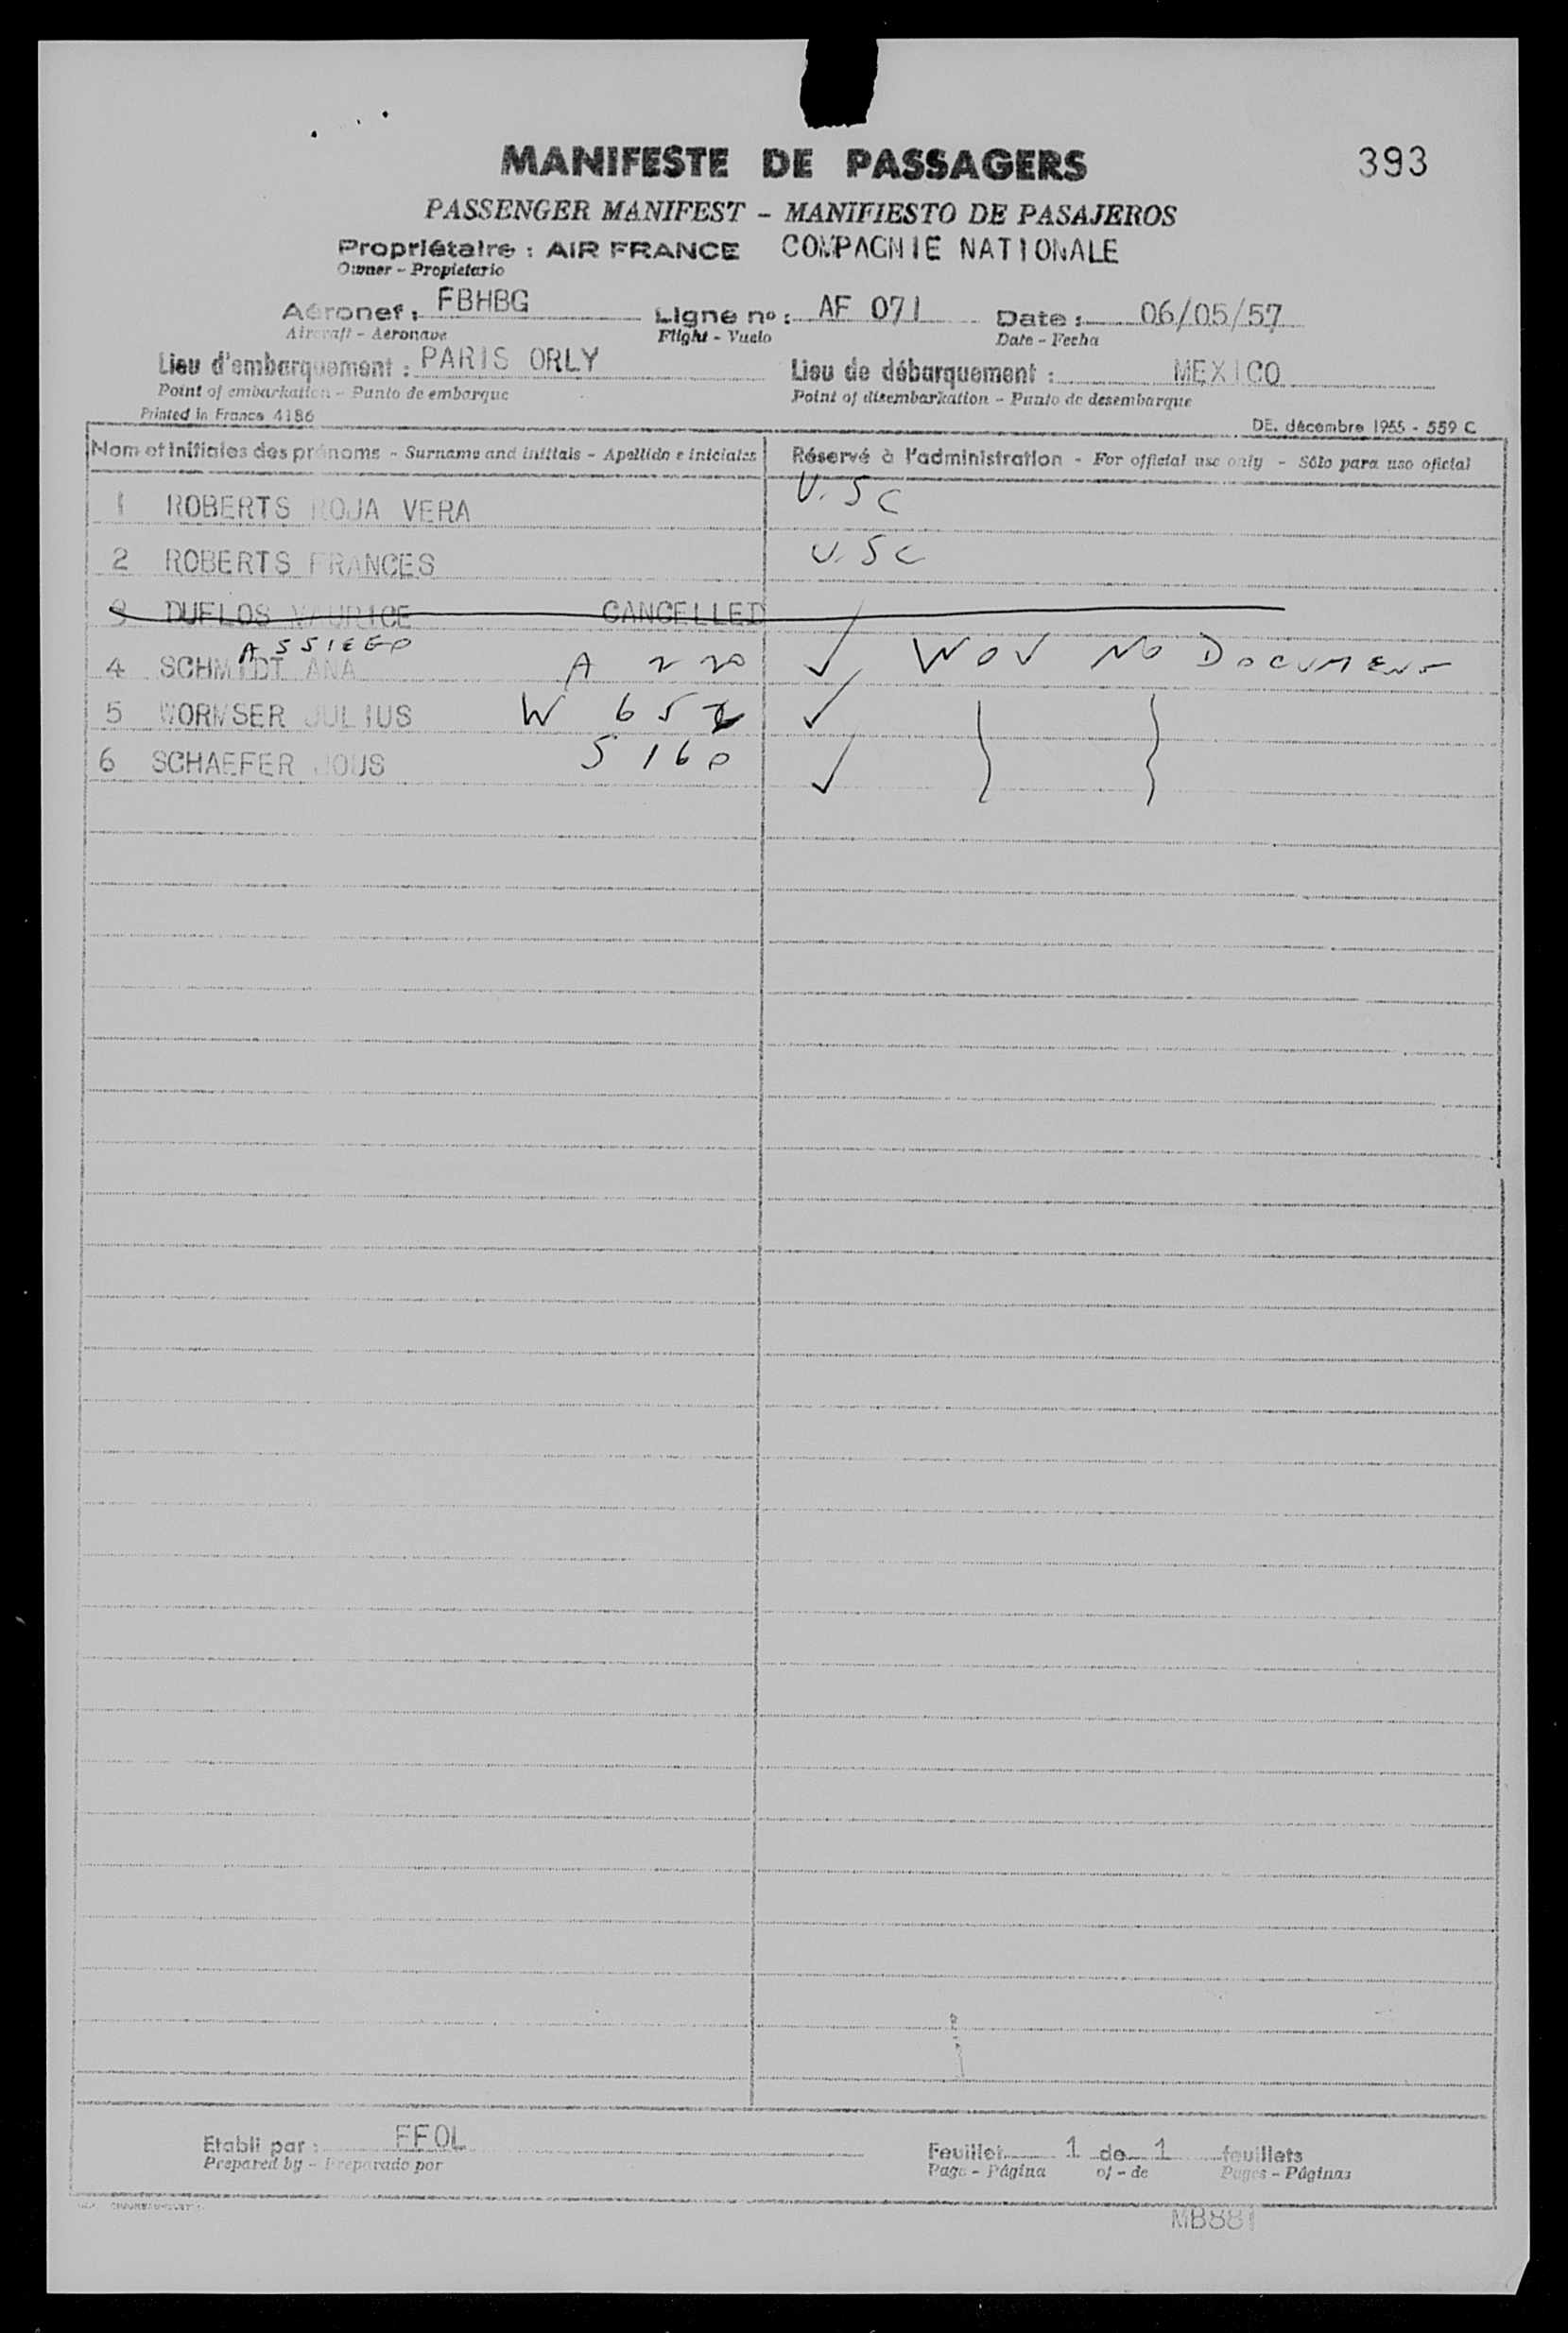 MANIFESTE DE PASSAGERS 393
PASSENGER MANIFEST - MANIFIESTO DE PASAJEROS
Propriétaire : AIR FRANCE COMPAGNIE NATIONALE
Owner - Propietario
Aéronef : FBHBG Ligne no : AF 071 Date : 06/05/57
Aircraft - Aeronave Flight - Vuelo Date - Fecha
Lieu d'embarquement : PARIS ORLY Lieu de débarquement : MEXICO
Point of embarkation - Punto de embarque Point of disembarkation - Punto de desembarque
Printed in France 4186 DE. décembre 1955 - 559 C
Nom et initiales des prénoms - Surname and initials - Apellido e iniciales Réservé à l'administration - For official use only - Sólo para uso oficial
1 ROBERTS ROJA VERA U.SC
2 ROBERTS FRANCES U.SC
3 DUFLOS MAURICE CANCELLED
ASSIEGO
4 SCHMIDT ANA A 220 WOV NO DOCUMENT
5 WORMSER JULIUS W 652
6 SCHAEFER JOUS S 160
Etabli par : FFOL Feuillet 1 de 1 feuillets
Prepared by - Preparado por Page - Página of - de Pages - Páginas
MB881